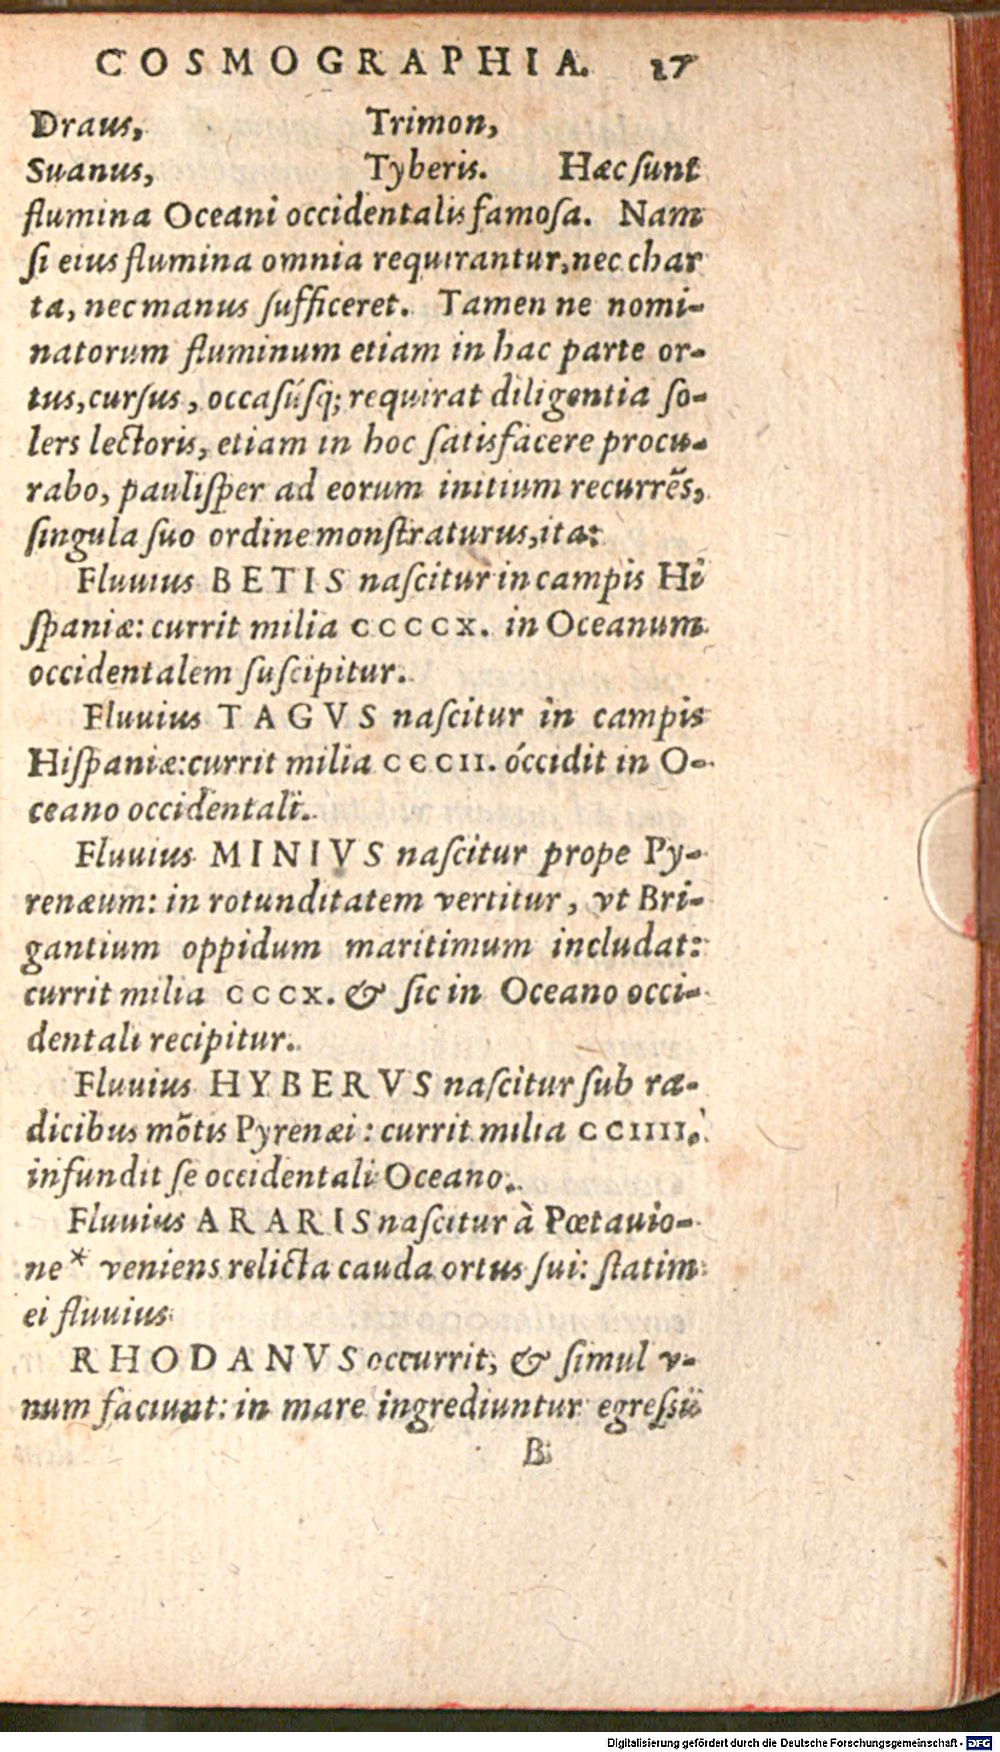 COSMOGRAPHIA. 17
Draus, Trimon,
Suanus, Tyberis. Hæc ſunt
flumina Oceani occidentalis famoſa. Nam
ſi eius flumina omnia requirantur, nec char
ta, nec manus ſufficeret. Tamen ne nomi-
natorum fluminum etiam in hac parte or-
tus, curſus, occaſúſq; requirat diligentia ſo-
lers lectoris, etiam in hoc ſatisfacere procu-
rabo, pauliſper ad eorum initium recurrẽs,
ſingula ſuo ordine monſtraturus, ita:
Fluuius BETIS naſcitur in campis Hi
ſpaniæ: currit milia CCCCX. in Oceanum
occidentalem ſuſcipitur.
Fluuius TAGVS naſcitur in campis
Hiſpaniæ: currit milia CCCII. óccidit in O-
ceano occidentali.
Fluuius MINIVS naſcitur prope Py-
renæum: in rotunditatem vertitur, vt Bri-
gantium oppidum maritimum includat:
currit milia CCCX. & ſic in Oceano occi-
dentali recipitur.
Fluuius HYBERVS naſcitur ſub ra-
dicibus mõtis Pyrenæi: currit milia CCIIII.
infundit ſe occidentali Oceano.
Fluuius ARARIS naſcitur à Pœtauio-
ne* veniens relicta cauda ortus ſui: ſtatim
ei fluuius
RHODANVS occurrit, & ſimul v-
num faciunt: in mare ingrediuntur egreſsii
B
Digitalisierung gefördert durch die Deutsche Forschungsgemeinschaft - DFG